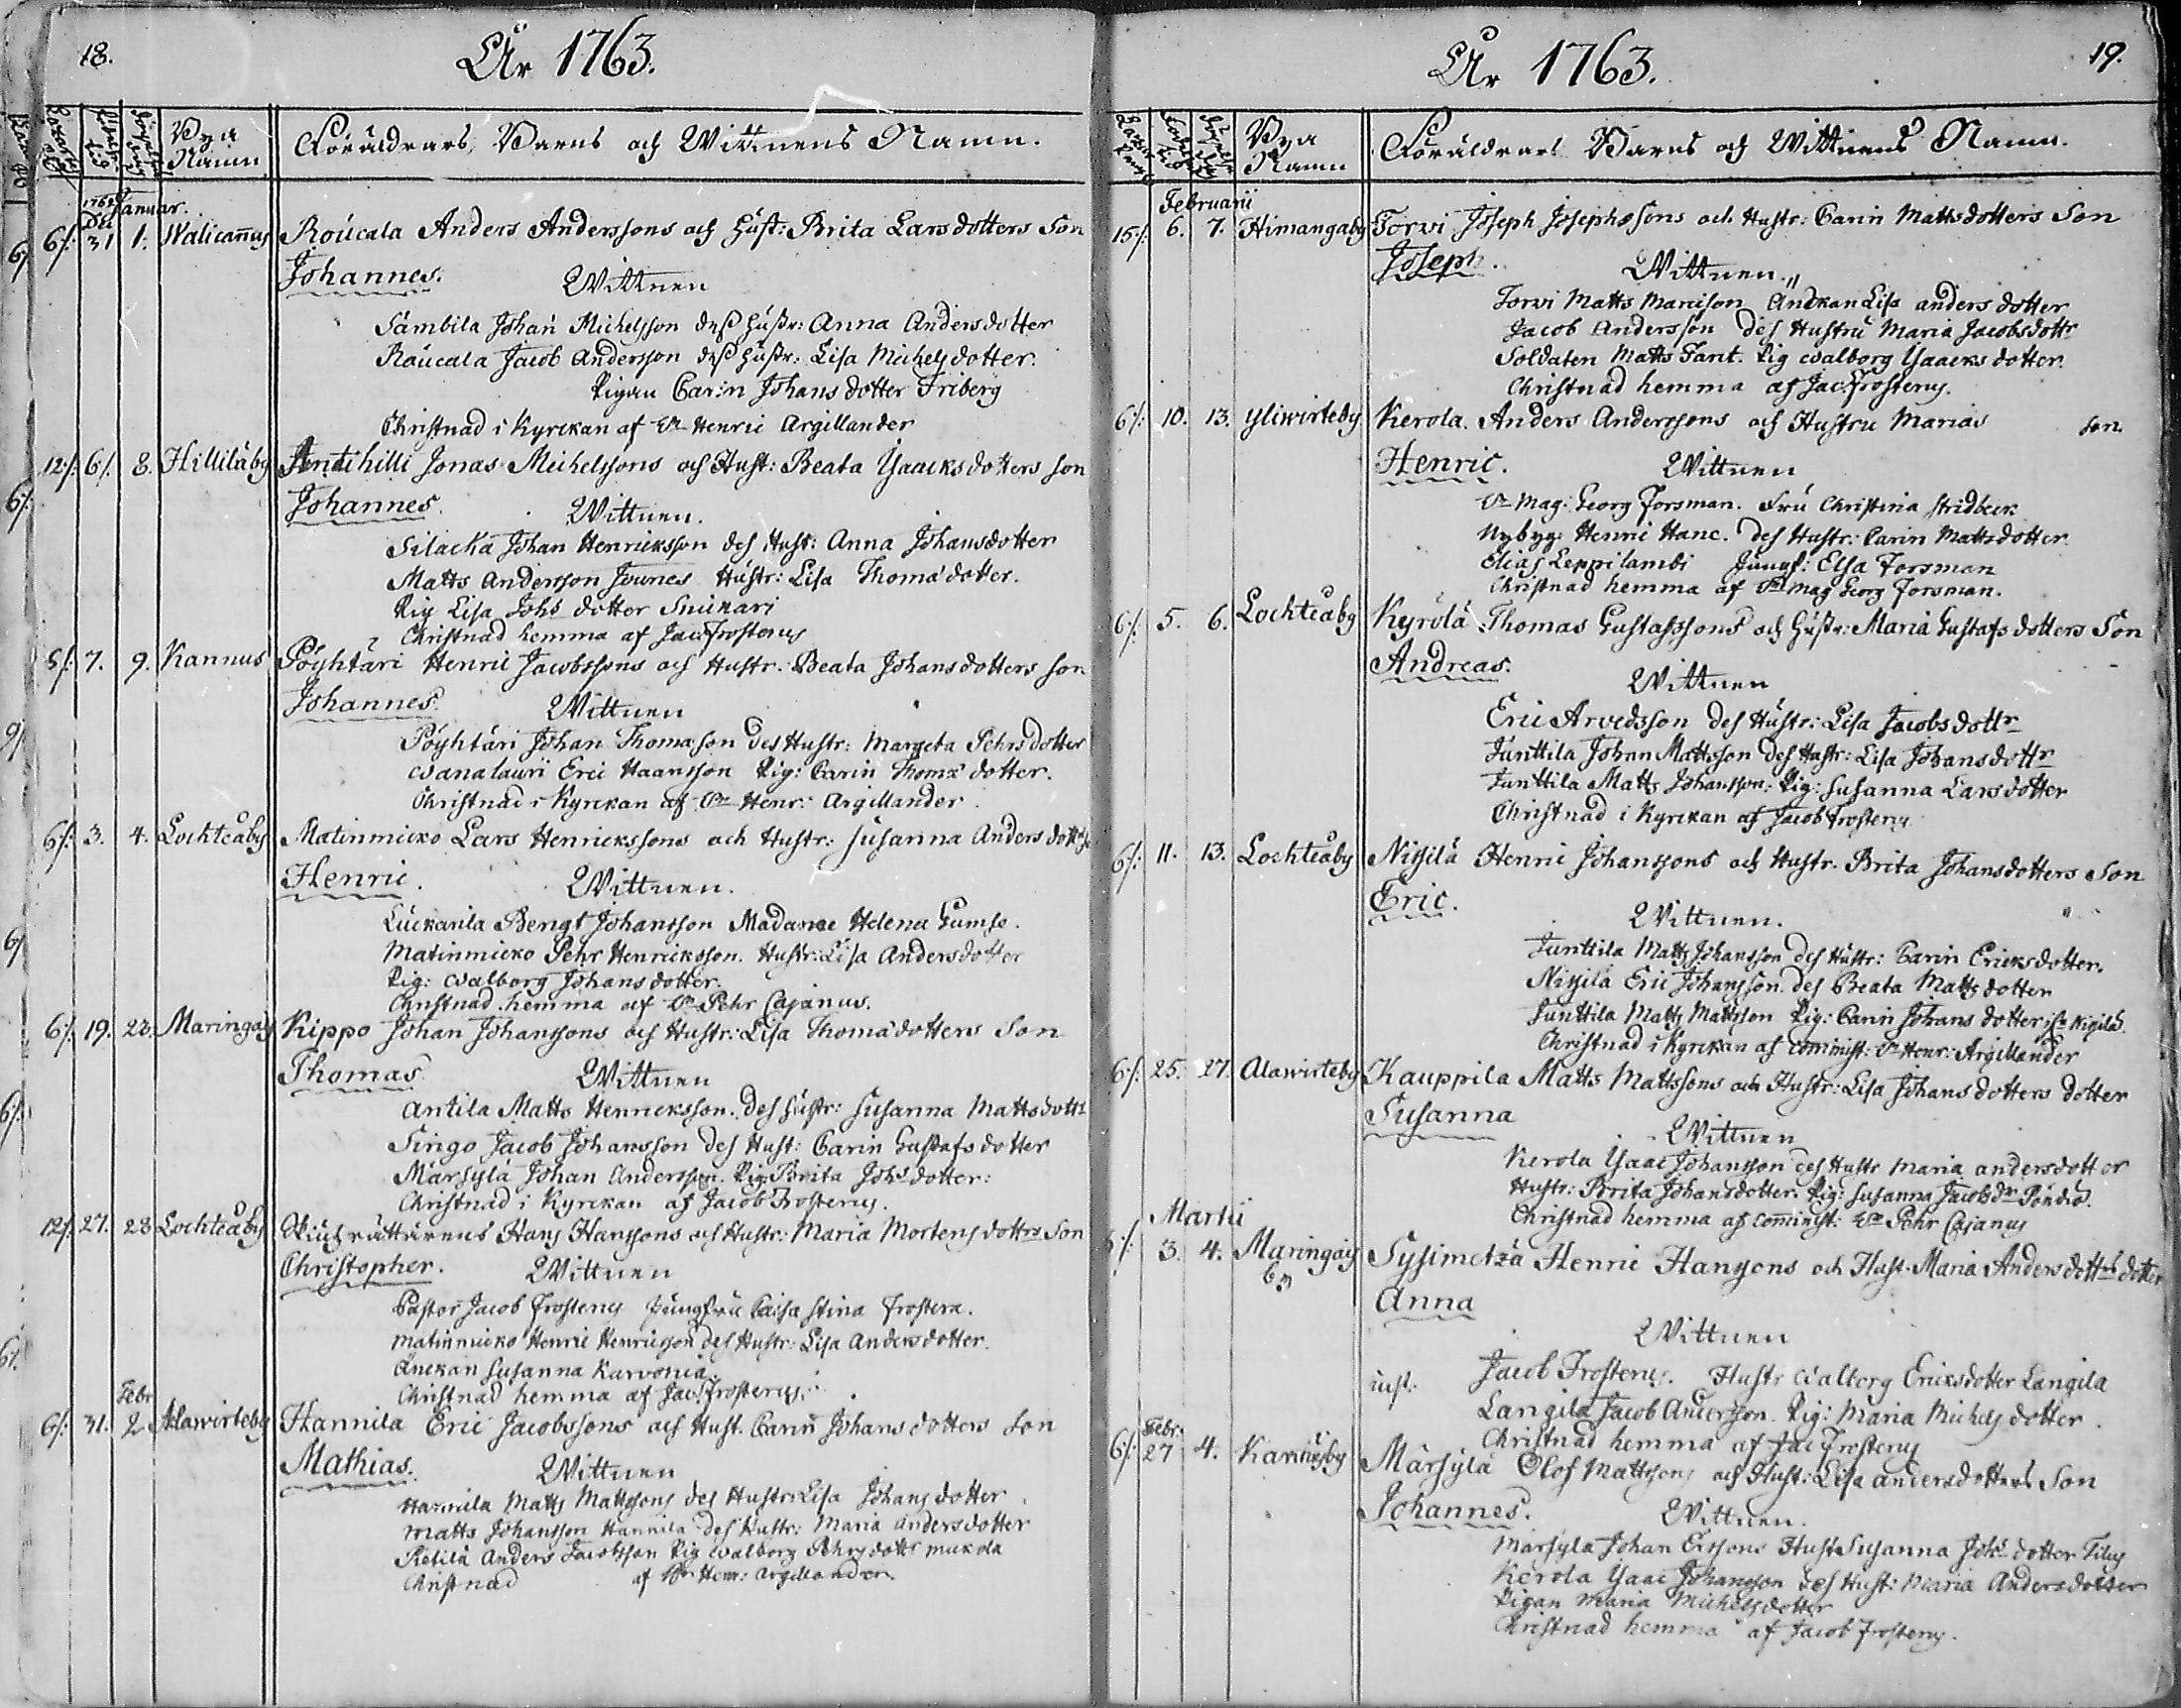 18.
År 1763.
Bya Namn
Föräldrars, Barns och Wittnens Namn.
1762 Januar.
Dec
6/: 31 1. Walicannus Roucala Anders Anderssons och Hust: Brita Larsdotters Son
Johannes. Wittnen
Sämbila Johan Michelsson dess Hustr: Anna Andersdotter
Roucala Jacob Andersson dess Hustr: Lisa Michelsdotter.
Pigan Carin Johansdotter Friberg
Christnad i Kyrckan af Hr Henric Argillander
12/: 6/. 8. Hilliläby Anttihilli Jonas Michelssons och Hust: Beata Ysaacksdotters son
Johannes. Wittnen.
Silacka Johan Henricksson des Hust: Anna Johansdotter
Matts Andersson Jounes Hustr: Lisa Thomædotter.
Pig Lisa Johs dotter Snickari
Christnad hemma af Jac. Frosterus
5/: 7. 9. Kannus Pöyhtäri Henric Jacobssons och Hustr: Beata Johansdotters son
Johannes. Wittnen
Pöyhtäri Johan Thomasson des Hustr: Margeta Pehrsdotter
Wanalauri Eric Haansson Pig: Carin Thomæ dotter.
Christnad i Kyrckan af Hr Henr: Argillander.
6/: 3. 4. Lochteåby Matinmicko Lars Henrickssons och Hustr: Susanna Andersdottrs
Henric. Wittnen.
Luckarila Bengt Johansson Madame Helena Gumse.
Matinmicko Pehr Henricksson. Hustr: Lisa Andersdotter
Pig: Walborg Johansdotter.
Christnad hemma af Hr Pehr Cajanus.
6/: 19. 23. Maringais Kippo Johan Johanssons och Hustr: Lisa Thomædotters Son
Thomas Wittnen
Antila Matts Henricksson. des Hustr: Susanna Mattsdottr
Singo Jacob Johansson des Hust: Carin Gustafsdotter
Märsylä Johan Andersson. Pig: Brita Johs dotter:
Christnad i Kyrckan af Jacob Frosterus.
12/: 27. 28 Lochteåby Skiutsrättarens Hans Hanssons och Hustr: Maria Mortensdottrs Son
Christopher. Wittnen
Pastor Jacob Frosterus Jungfru Caisa Stina Frostera.
Matinmicko Henric Henricsson des Hustr: Lisa Andersdotter.
Änckan Susanna Karvonia.
Christnad hemma af Jac. Frosterus.
Febr
6/: 31. 2 Alawirteby Hannila Eric Jacobssons och Hust. Carin Johansdotters son
Mathias. Wittnen
Hannila Matts Mattssons des Hustr: Lisa Johansdotter
Matts Johansson Hannila des Hustr: Maria Andersdotter
Anders Jacobsson Pig Walborg Pehrsdottr
Christnad af Hr Henr: Argillander.
År 1763.
19.
Bya Namn
Föräldrars Barns och Wittnens Namn.
Februarii
15/: 6. 7. Himangaby Torvi Joseph Josephssons och Hustr: Carin Mattsdotters Son
Joseph. Wittnen.
Torvi Matts Marcison Änckan Lisa Andersdotter
Jacob Andersson des Hustru Maria Jacobsdottr
Soldaten Matts Fant. Pig Walborg Ysaacksdotter.
Christnad hemma af Jac. Frosterus.
6/: 10. 13. Yliwirteby Kerola. Anders Anderssons och Hustru Marias son.
Henric. Wittnen
Hr Mag: Georg Forsman. Fru Christina Stridbeck
Nybyg: Henric Hanc. des Hustr: Carin Mattsdotter.
Elias Leppilambi Jungf: Elsa Forsman
Christnad hemma af Hr Mag Georg Forsman.
6/: 5. 6. Lochteåby Kyrölä Thomas Gustafssons och Hustr: Maria Gustafsdotters Son
Andreas. Wittnen
Eric Arvedsson des Hustr: Lisa Jacobsdottr
Junttila Johan Mattsson des Hustr: Lisa Johansdottr
Junttila Matts Johansson. Pig: Susanna Larsdotter
Christnad i Kyrckan af Jacob Frosterus
6/: 11. 13. Lochteåby Nisilä Henric Johanssons och Hustr. Brita Johansdotters Son
Eric. Wittnen.
Junttila Matts Johansson des Hustr: Carin Ericksdotter.
Nisilä Eric Johansson. des Beata Mattsdotter
Junttila Matts Mattsson Pig: Carin Johansdotter
Christnad i Kyrckan af Comminist: Hr Henr: Argillander
6/: 25. 27. Alawirteby Kauppila Matts Mattssons och Hustr: Lisa Johansdotters dotter
Susanna Wittnen
Kerola Ysaac Johansson des Hustr Maria Andersdotter
Hustr: Brita Johansdotter. Pig: Susanna Jacobsdr Pöndiö.
Christnad hemma af Comminist: Hr Pehr Cajanus
Martii
6/: 3. 4. Maringais Sysimetzä Henric Hanssons och Hust. Maria Andersdottrs dotter
Anna
Wittnen
Jacob Frosterus. Hustr Walborg Ericksdotter Langila
Langila Jacob Andersson. Pig: Maria Michelsdotter.
Christnad hemma af Jac Frosterus
Febr.
6/: 27 4. Kannusby Märsylä Olof Mattssons och Hust: Lisa Andersdotters Son
Johannes. Wittnen.
Märsylä Johan Ersons Hust Susanna Johs dotter Tilus
Kerola Ysaac Johansson des Hust: Maria Andersdotter
Pigan Maria Michelsdotter
Christnad hemma af Jacob Frosterus.